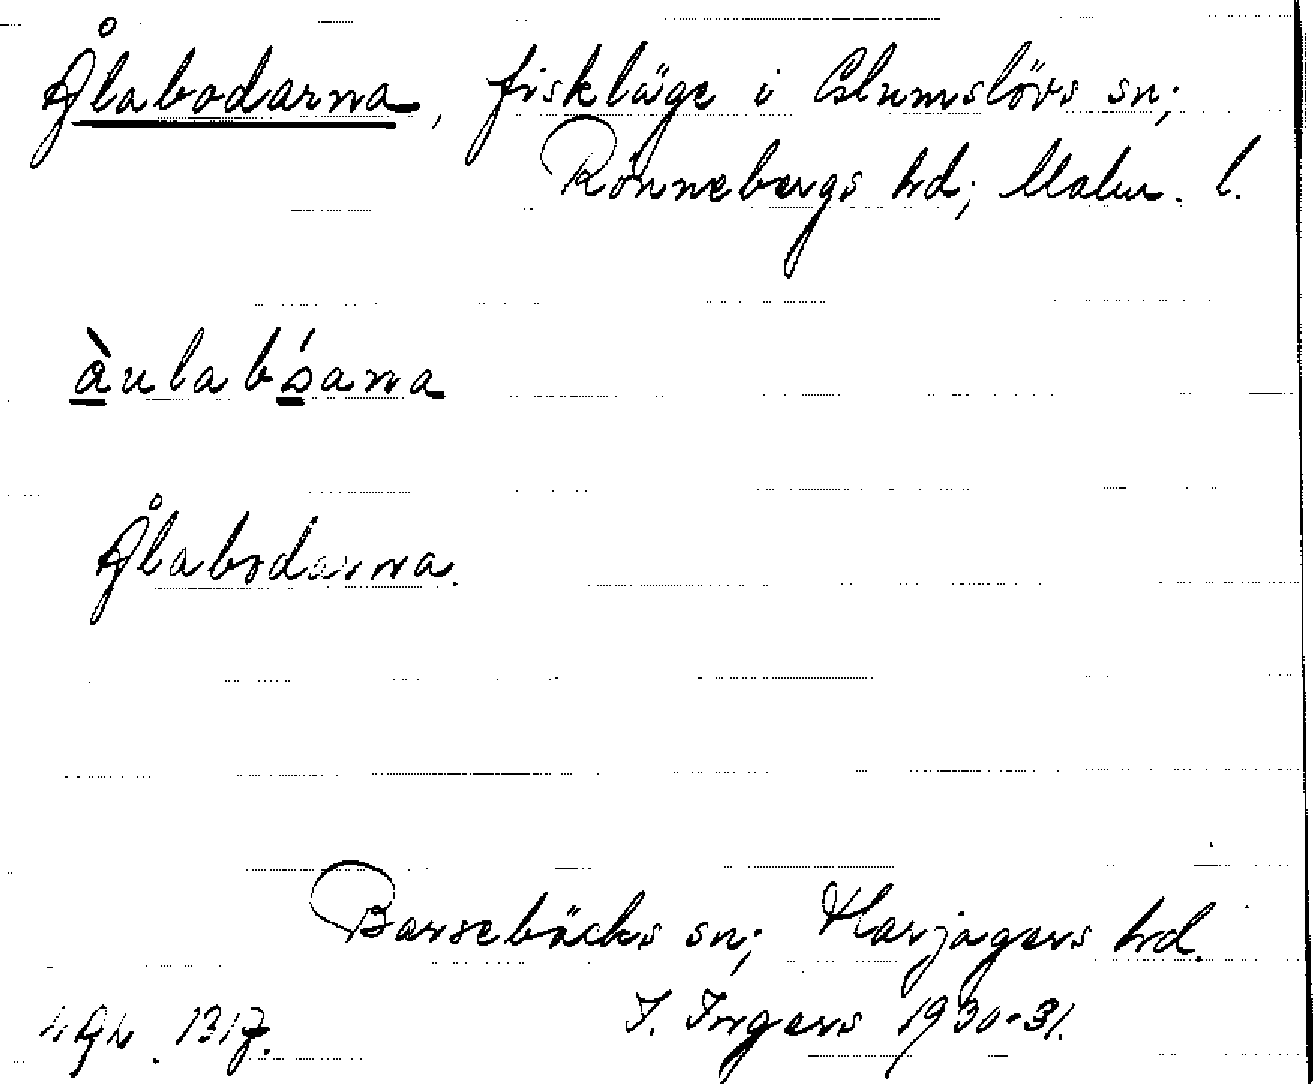 Ålabodarna, fiskläge i Glumslövs sn;
Rönnebergs hd; Malm. l.
àulabóana
Ålabodarna.
Barsebäcks sn; Harjagers hd.
I. Ingers 1930-31.
1317.